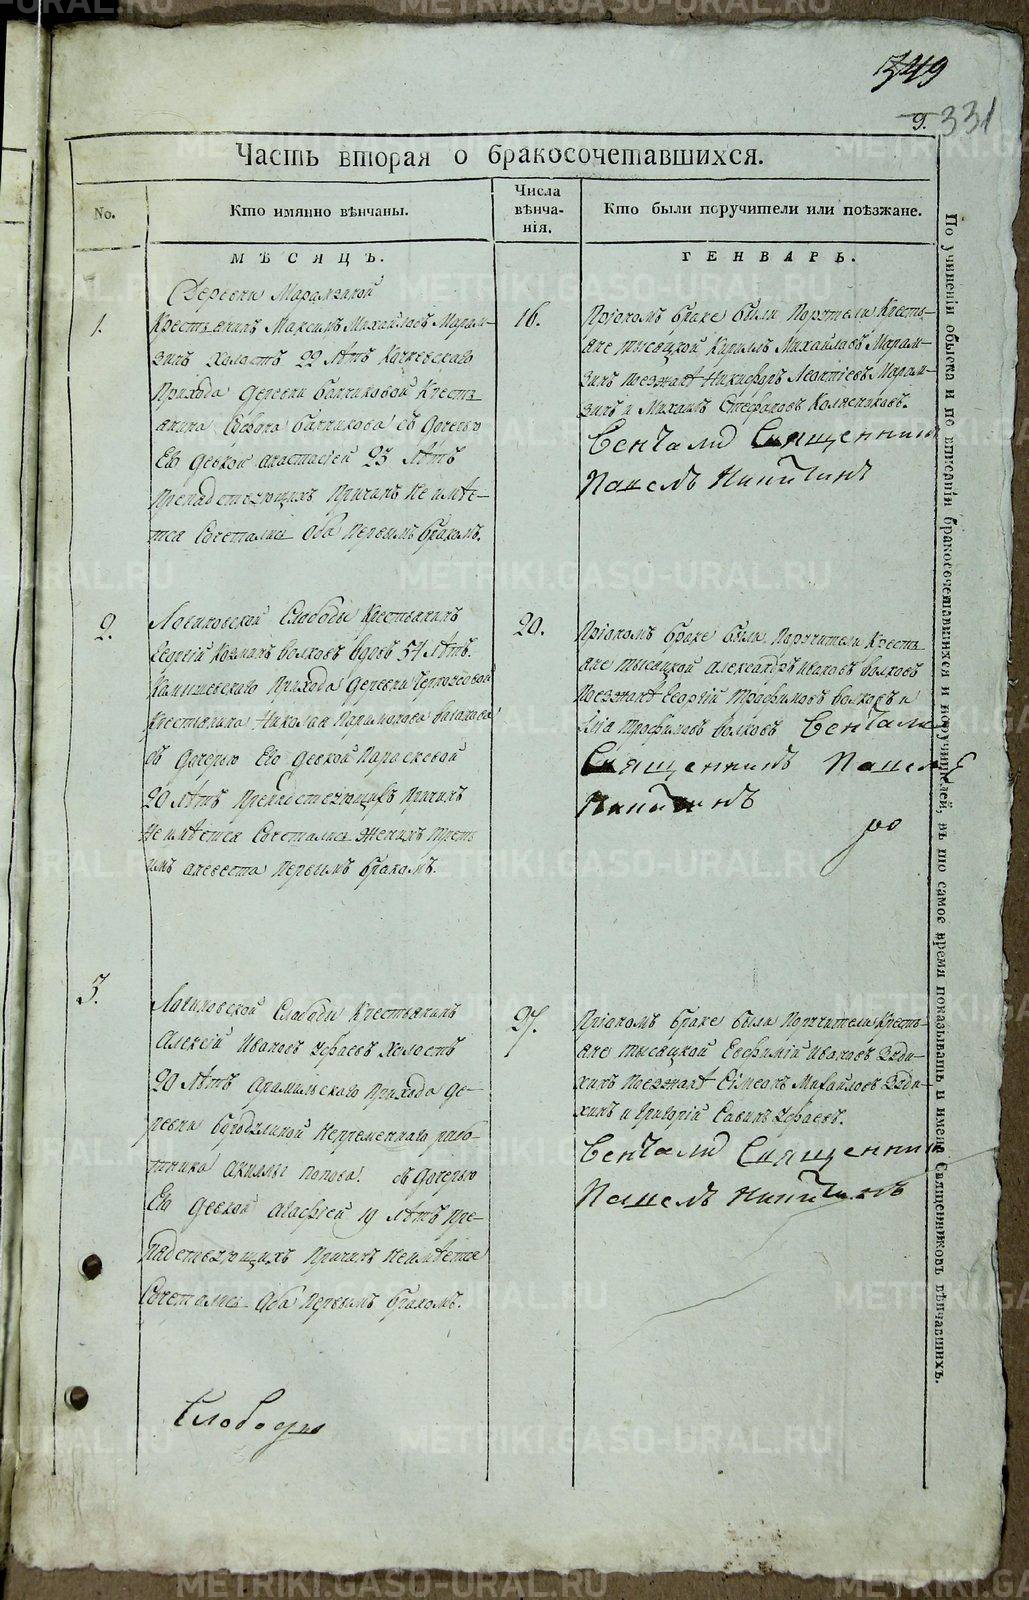 349
9. 331
Часть вторая о бракосочетавшихся.
No.
Кто имянно вѣнчаны.
Числа вѣнча-нія.
Кто были поручители или поѣзжане.
МѢСЯЦЪ.
ГЕНВАРЬ.
Деревни Марамзиной
1.
Крестьянинъ Максимъ Михайловъ Марам-
зинъ холостъ 22 лѣтъ
Прихода деревни Банниковой Крестъ
янина Банникова съ дочерью
Ею девкой анастасіей 23 лѣтъ
Препядствующихъ Причинъ Не имѣе-
тся Сочетались Оба Первымъ бракомъ.
16.
Пріономъ браке были Поручтели Кресть-
яне тысяцкой Кирилъ Михайловъ Марам-
зинъ поезжанѣ Никифоръ Леонтіевъ Марам-
зинъ и Михаилъ Стефановъ Колясниковъ.
Венчали Священникъ
Павелъ Никитинъ
2.
Логиновской Слободы Крестьянинъ
Георгій Козминъ волковъ вдовъ 57 лѣтъ.
Камышевскаго Прихода деревни
Крестьянина Николая
съ дочерью Ево девкой Параскевой
20 лѣтъ Препядствующихъ Причинъ
Не имѣется Сочетались Женихъ Треть
имъ аневеста Первымъ бракомъ.
20.
Пріономъ браке были Поручители Кресть
яне тысяцкой александръ Ивановъ волковъ
Поезжанѣ Георгій Трофимовъ волковъ и
Илiа Трофимовъ волковъ Венчали
Священникъ Павелъ
Никитинъ
ро
3.
Логиновской Слободы Крестьянинъ
Алексій Ивановъ Уфаевъ Холостъ
20 лѣтъ арамильскаго Прихода де-
ревни Бородулиной Непременнаго рабо-
тника акилы попова съ дочерью
Ею девкой агафіей 19 лѣтъ пре-
пядствующихъ Причинъ Неимѣется
Сочетались Оба Первымъ бракомъ.
27.
Пріономъ браке были Поручители Кресть-
яне тысяцкой Евфимій Ивановъ
поезжанѣ Сімеонъ Михайловъ
хинъ и Григорій Савинъ Уфаевъ.
Венчали Священникъ
Павелъ Никитинъ
Слободы
По учиненіи обыска и по вписаніи бракосочетавшихся и поручителей, въ то самое время показывать и имена Священниковъ вѣнчавшихъ.
METRIKI.GASO-URAL.RU